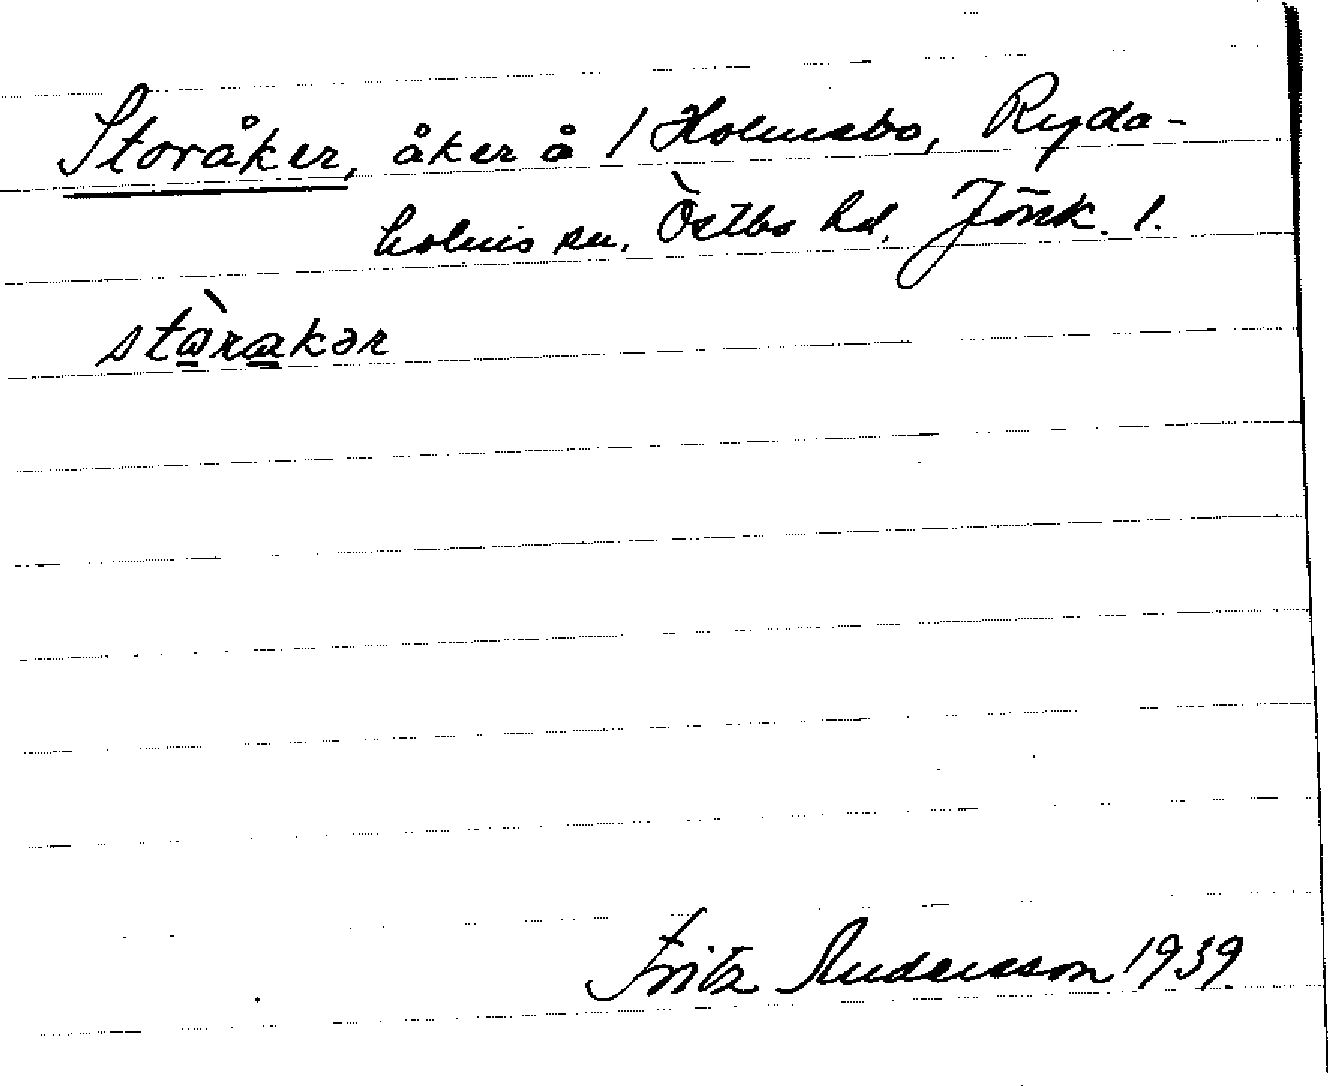 Storåker, åker å 1 Holmsbo, Ryda-
holms sn. Östbo hd. Jönk. l.
stàrakər
Fritz Andersson 1939.